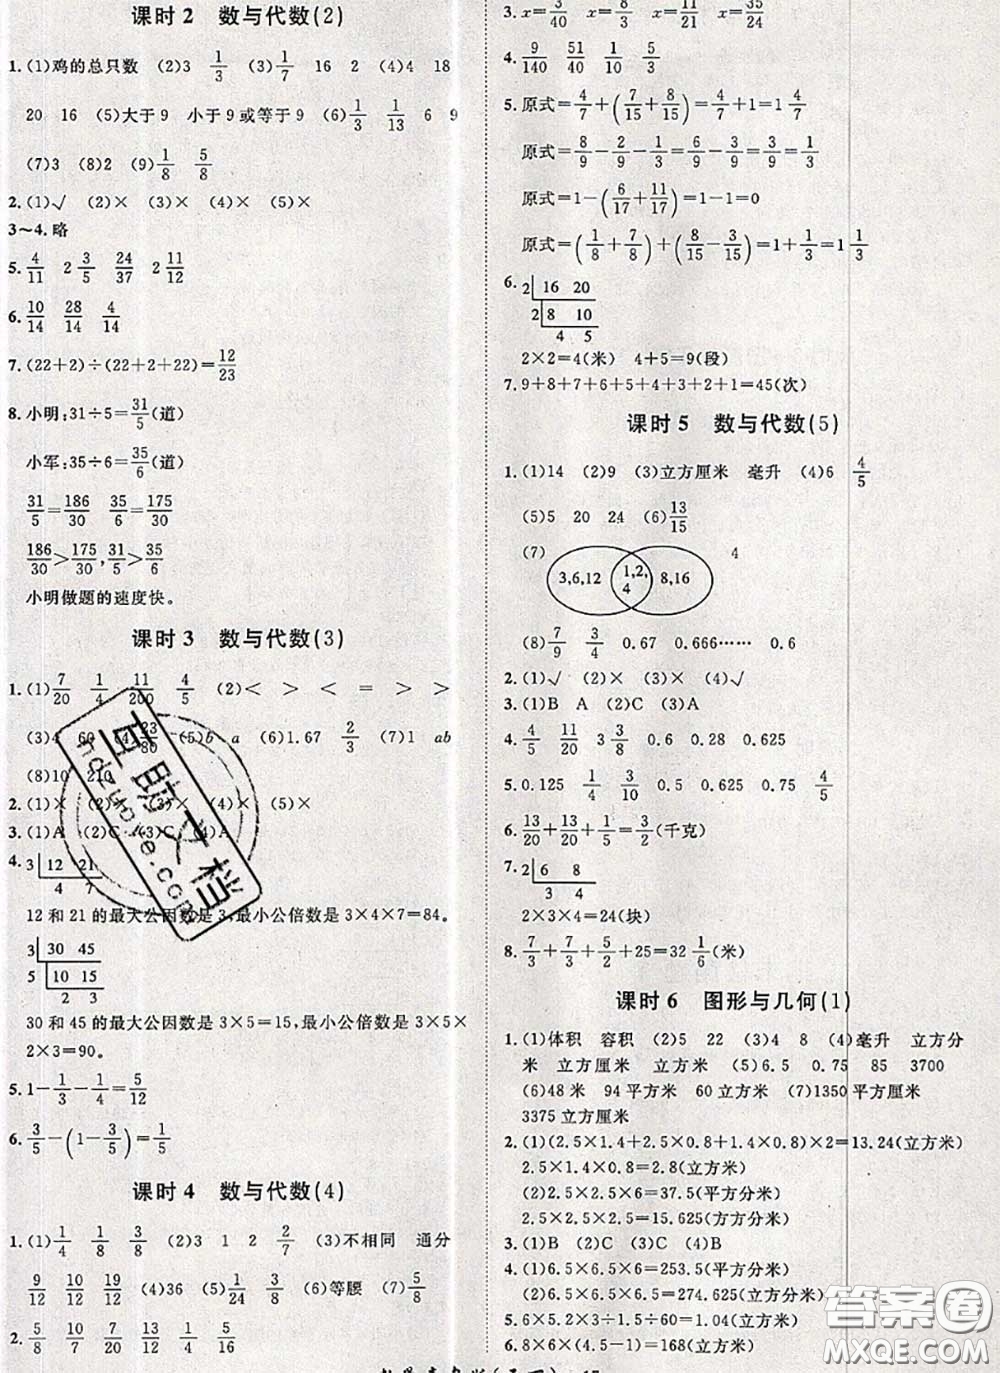 课时2 数与代数(2)
1.(1)鸡的总只数 (2)3 1/3 (3)1/7 16 2 (4)4 18
20 16 (5)大于9 小于9或等于9 (6)1/3 1/13 6 9
(7)3 (8)2 (9)1/8 5/8
2.(1)√ (2)× (3)× (4)× (5)×
3~4.略
5. 4/11 2 3/5 24/37 2 11/12
6. 10/14 28/14 4/14
7.(22+2)÷(22+2+22)=12/23
8.小明:31÷5=31/5(道)
小军:35÷6=35/6(道)
31/5=186/30 35/6=175/30
186/30>175/30,31/5>35/6
小明做题的速度快。
课时3 数与代数(3)
1.(1)7/20 1/4 11/200 4/5 (2)< > < = > >
(3)4 60 (4) 23/80 (5)b a (6)1.67 2/3 (7)1 ab
(8)10 210
2.(1)× (2) (3)× (4)× (5)×
3.(1)A (2)C (3)C (4)A
4. 3 12 21
4 7
12和21的最大公因数是3,最小公倍数是3×4×7=84。
3 30 45
5 10 15
2 3
30和45的最大公因数是3×5=15,最小公倍数是3×5×
2×3=90。
5. 1-1/3-1/4=5/12
6. 3/5-(1-3/5)=1/5
课时4 数与代数(4)
1.(1)1/4 1/8 3/8 (2)3 1 2 2/7 (3)不相同 通分
9/12 10/12 19/12 (4)36 (5)1/24 3/8 (6)等腰 (7)5/8
2. 5/8 10/7 13/12 1/4 4/5
3. x=3/40 x=1/8 x=11/21 x=35/24
4. 9/140 51/40 11/10 1/40
5.原式=4/7+(7/15+8/15)=4/7+1=1 4/7
原式=8/9-2/9-1/3=6/9-3/9=3/9=1/3
原式=1-(6/17+11/17)=1-1=0
原式=(1/8+7/8)+(8/15-3/15)=1+1/3=1 1/3
6. 2 16 20
2 8 10
4 5
2×2=4(米) 4+5=9(段)
7. 9+8+7+6+5+4+3+2+1=45(次)
课时5 数与代数(5)
1.(1)14 (2)9 (3)立方厘米 毫升 (4)6 4/5
(5)5 20 24 (6)13/15
(7) 3,6,12 1,2,4 8,16 4
(8)7/9 3/4 0.67 0.666…… 0.6
2.(1)√ (2)× (3)× (4)√
3.(1)B A (2)C (3)A
4. 4/5 11/20 3 3/8 0.6 0.28 0.625
5. 0.125 1/4 3/10 0.75 0.8 0.625
6. 13/20+13/20+1/5=3/2(千克)
7. 2 6 8
3 4
2×3×4=24(块)
8. 7/3+7/3+5/2+25=32 1/6(米)
课时6 图形与几何(1)
1.(1)体积 容积 (2)5 22 (3)4 8 (4)毫升 立方分
米 立方厘米 立方米 (5)6.5 0.75 85 3700
(6)48米 94平方米 60立方米 (7)1350平方厘米
3375立方厘米
2.(1)(2.5×1.4+2.5×0.8+1.4×0.8)×2=13.24(立方米)
2.5×1.4×0.8=2.8(立方米)
(2)2.5×2.5×6=37.5(平方分米)
2.5×2.5×2.5=15.625(方方分米)
3.(1)B (2)C (3)C (4)B
4.(1)6.5×6.5×6=253.5(平方分米)
(2)6.5×6.5×6.5=274.625(立方分米)
5. 2.6×0.5×0.8=1.04(立方米)
6. 8×6×(4.5-1)=168(立方米)
互助文档
hdzuoye.com
答案圈
MXQE.COM